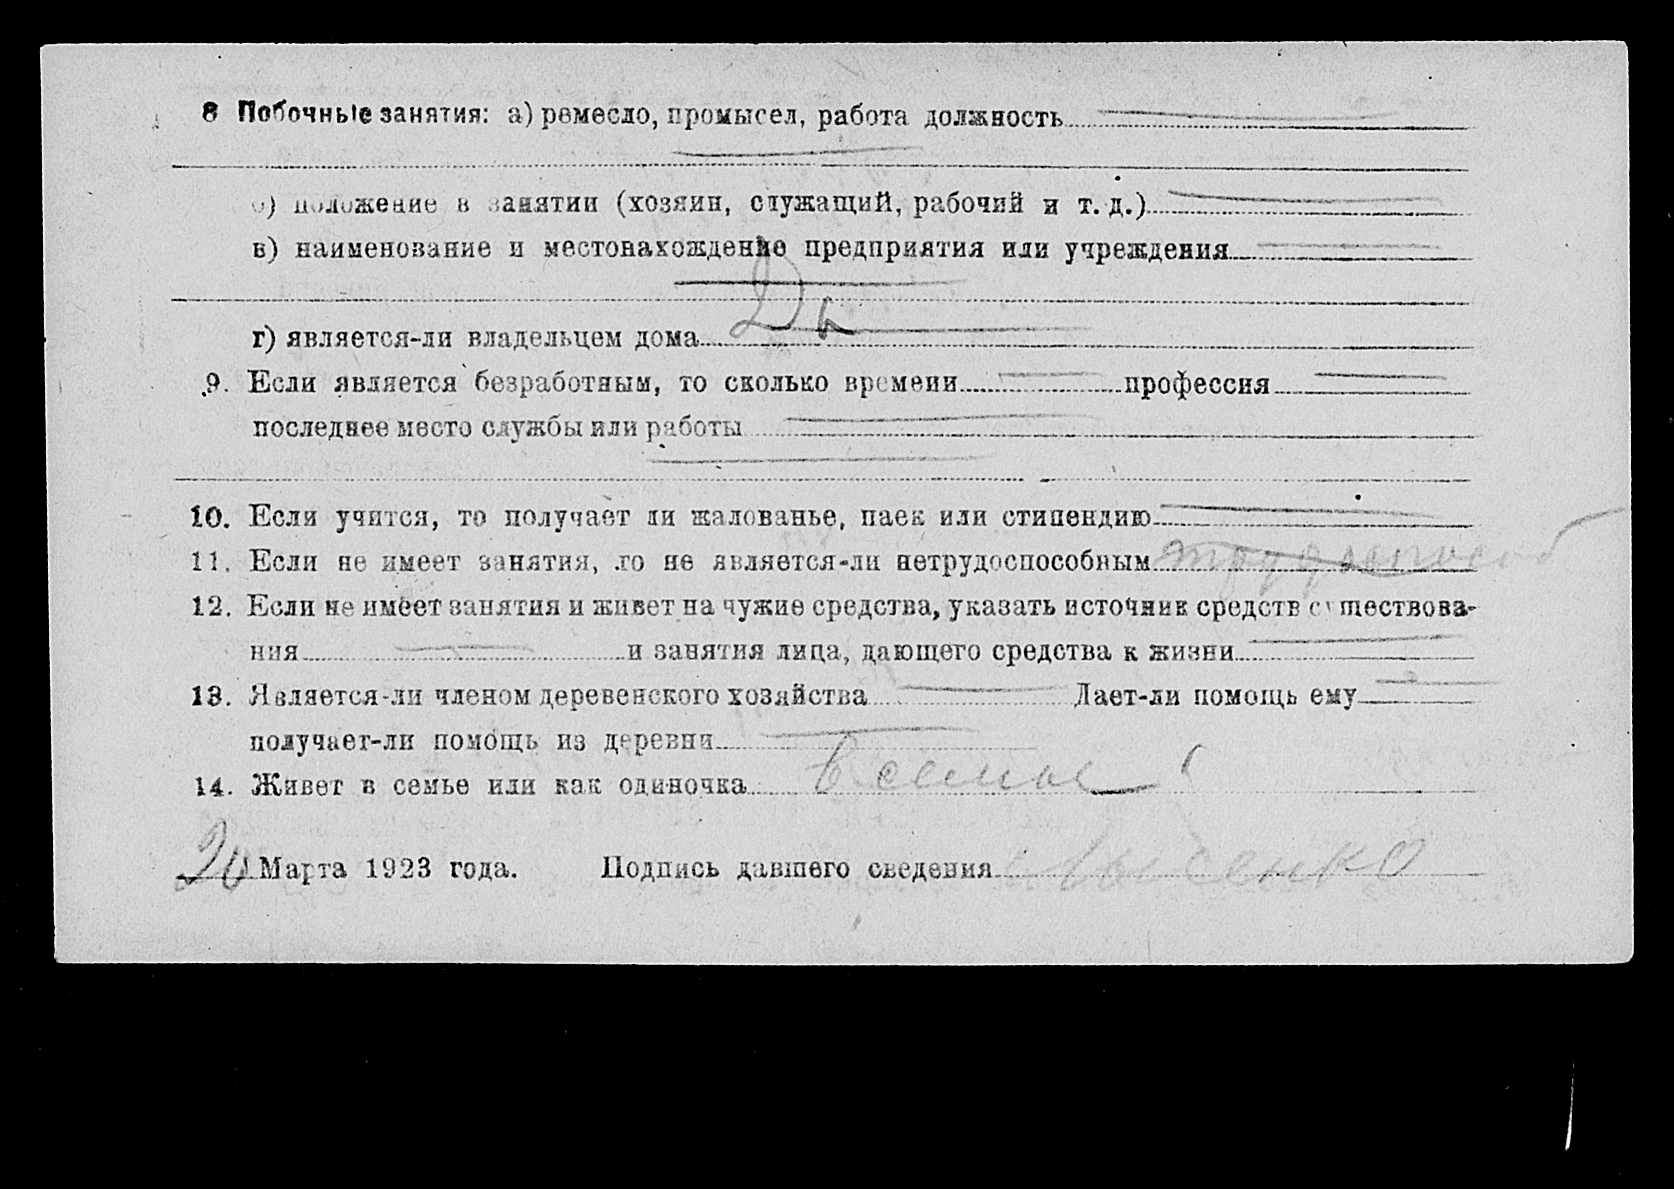 8 Побочные занятия: а) ремесло, промысел, работа должность
б) положение в занятии (хозяин, служащий, рабочий и т. д.)
в) наименование и местонахождение предприятия или учреждения
г) является-ли владельцем дома Да
9. Если является безработным, то сколько времени профессия
последнее место службы или работы
10. Если учится, то получает ли жалованье, паек или стипендию
11. Если не имеет занятия, то не является-ли нетрудоспособным трудоспособ
12. Если не имеет занятия и живет на чужие средства, указать источник средств существова-
ния и занятия лица, дающего средства к жизни
13. Является-ли членом деревенского хозяйства Дает-ли помощь ему
получает-ли помощь из деревни
14. Живет в семье или как одиночка в семье
20 Марта 1923 года. Подпись давшего сведения Лысенко